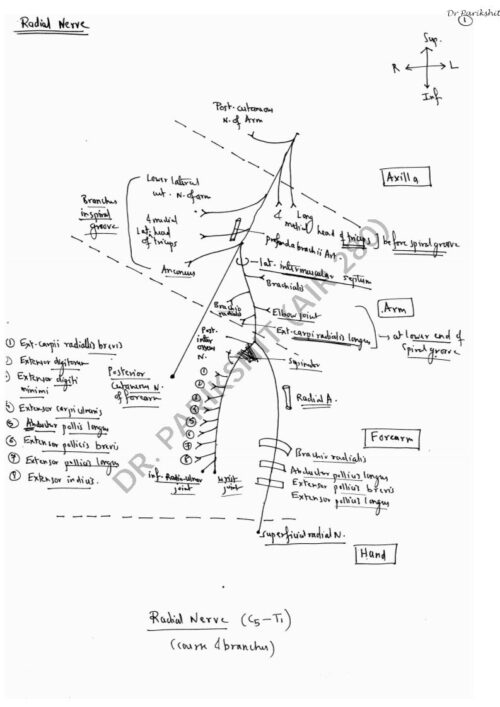 Dr Parikshit
1
Radial Nerve
Sup.
R L
Inf.
Post. cutaneous
N. of Arm
Axilla
Lower lateral
cut. N. of arm
Branches
in spiral
groove
& medial
Lat. head
of triceps
Anconeus
& Long
medial head of triceps
before spiral groove
profunda brachii Art.
lat. intermuscular septum
Brachialis
Arm
Brachio
radialis
Elbow joint
Ext-carpi radialis longus
at lower end of
spiral groove
Post.
inter
osseous
N.
Supinator
Posterior
cutaneous N.
of forearm
① Ext-carpii radiallis brevis
② Extensor digitorum
③ Extensor digiti
minimi
④ Extensor carpi ulnaris
⑤ Abductor pollis longus
⑥ Extensor pollicis brevis
⑦ Extensor pollicus longus
⑧ Extensor indius.
①
②
③
④
⑤
⑥
⑦
⑧
Radial A.
Forearm
Brachio radialis
Abductor pollius longus
Extensor pollius brevis
Extensor pollius longus
Inf. Radio-ulnar
joint
Wrist
joint
Superficial radial N.
Hand
Radial Nerve (C5-T1)
(course & branches)
DR. PARIKSHIT (AIR 280)